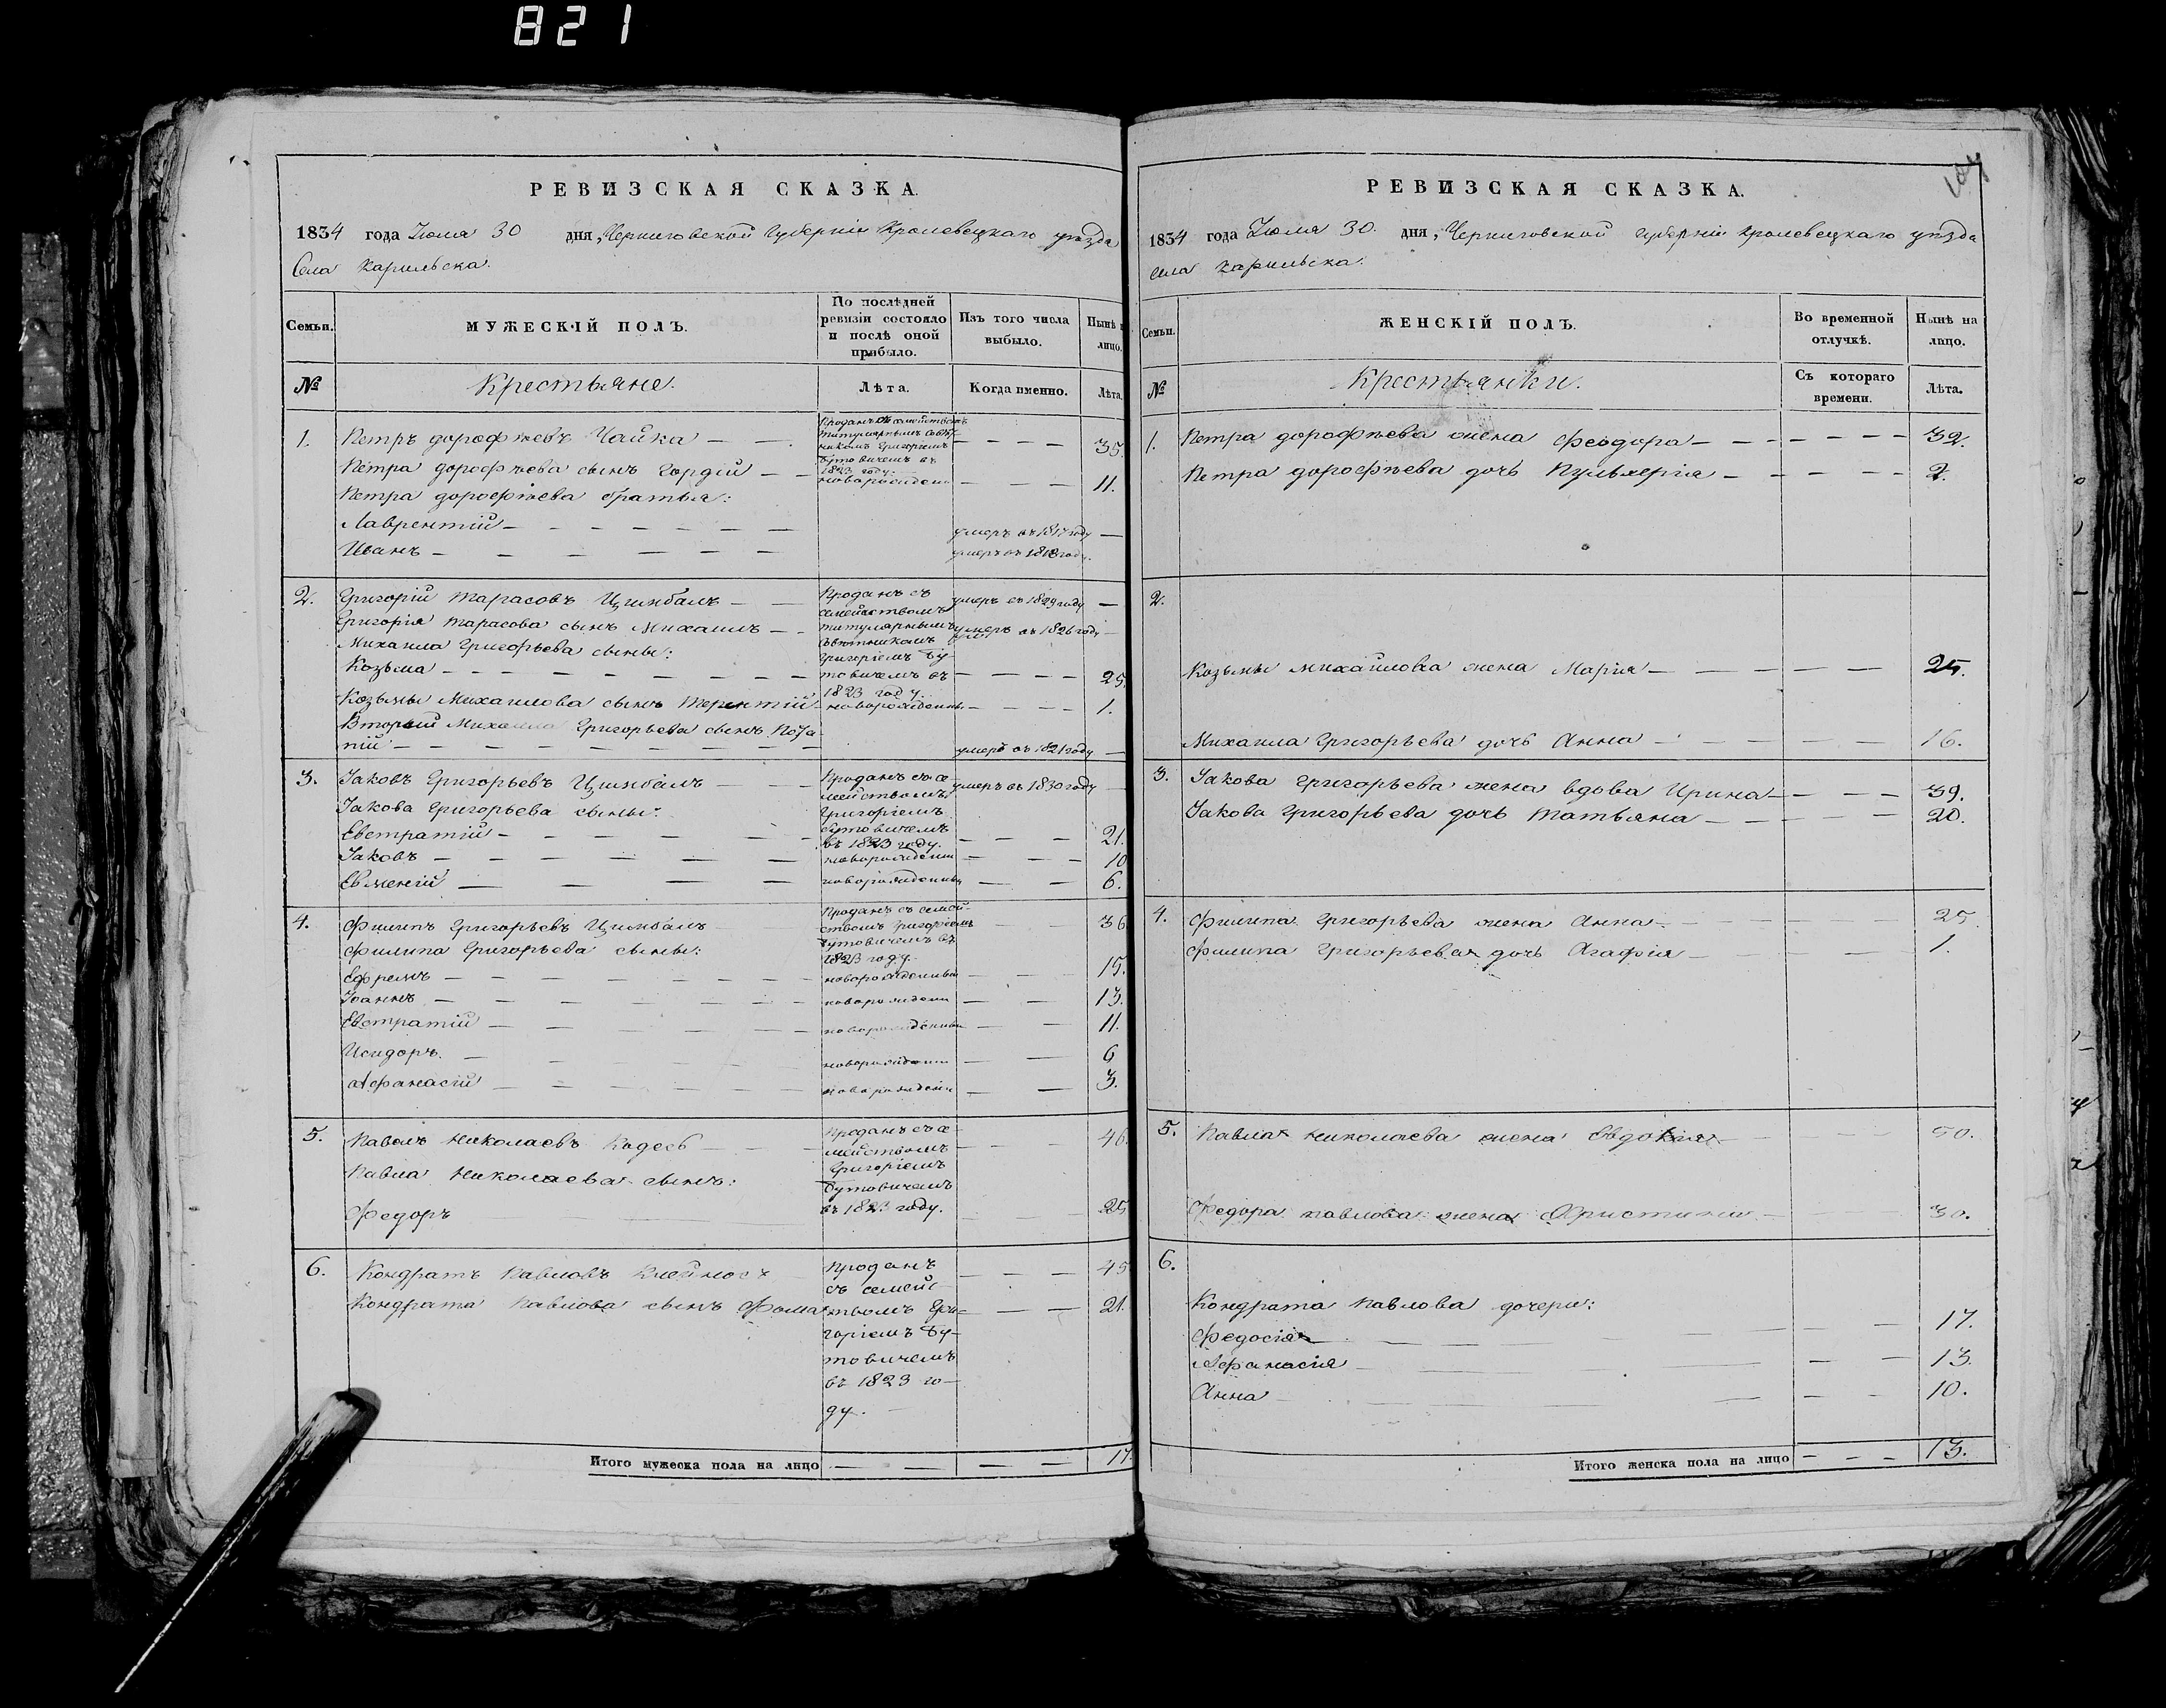 821
РЕВИЗСКАЯ СКАЗКА.
1834 года Іюля 30 дня, Черниговской Губерніи Кролевецкаго уѣзда
Села Карильска.
Семьи.
МУЖЕСКІЙ ПОЛЪ.
По послѣдней
ревизіи состояло
и послѣ оной
прибыло.
Изъ того числа
выбыло.
Нынѣ н
лицо.
№
Крестьяне.
Лѣта.
Когда именно.
Лѣта.
1. Петръ дорофѣевъ Чайка — — — — — — 35.
Проданъ съ семействомъ
титулярнымъ Совѣт-
никомъ Григоріемъ
Бутовичемъ въ
1823 году.
Петра дорофѣева сынъ Гордій — — новорожденн — — — 11.
Петра дорофѣева братья:
Лаврентій — — — — — — — умеръ въ 1817 году —
Иванъ — — — — — — умеръ въ 1818 году.
2. Григорій тарасовъ Цимбалъ — — умеръ въ 1829 году —
Проданъ съ
семействомъ
титулярнымъ
Совѣтникомъ
Григоріемъ Бу-
товичемъ въ
1823 году.
Григорія тарасова сынъ Михаилъ — — умеръ въ 1826 году —
Михаила Григорьева сыны:
Козьма — — — — — — — — — — — — 25.
Козьмы Михаилова сынъ Терентій — новорожденны — — — — 1.
Вторый Михаила Григорьева сынъ Пота
пій — — — — — — — — умеръ въ 1821 году —
3. Іаковъ Григорьевъ Цимбалъ — — умеръ въ 1830 году —
Проданъ съ се-
мействомъ
Григоріемъ
Бутовичемъ
въ 1823 году.
Іакова Григорьева сыны:
Евстратій — — — — — — — — — 21.
Іаковъ — — — — — — новорожденн — — — 10
Евменій — — — новорожденны — — 6.
4. Филипъ Григорьевъ Цимбалъ — — 36
Проданъ съ семей-
ствомъ Григоріемъ
Бутовичемъ въ
1823 году.
Филипа Григорьева сыны:
Ефремъ — — — — — — — новорожденны — — 15.
Іоаннъ — — — — — — — новорожденн — — 13.
Евстратій — — — — — — новорожденны — — 11.
Исидоръ. — — — — новорожденн — — 6
Афанасій — — — — — новорожденн — — 3.
5. Павелъ Николаевъ — — — — — 46.
Проданъ съ се-
мействомъ
Григоріемъ
Бутовичемъ
въ 1823 году.
Павла Николаева сынъ:
Федоръ — — 25
6. Кондратъ Павловъ — — — 45
Проданъ
съ семейс-
твомъ Гри-
горіемъ Бу-
товичемъ
въ 1823 го-
ду.
Кондрата Павлова сынъ Фома — — — 21.
Итого мужеска пола на лицо — — — — 17.
РЕВИЗСКАЯ СКАЗКА.
1834 года Іюля 30. дня, Черниговской Губерніи Кролевецкаго уѣзда
села Карильска.
Семьи.
ЖЕНСКІЙ ПОЛЪ.
Во временной
отлучкѣ.
Нынѣ на
лицо.
№
Крестьянки.
Съ котораго
времени.
Лѣта.
1. Петра дорофѣева жена Феодора — — — — — — — 32.
Петра дорофѣева дочь Пульхерія — — — — — 2.
2.
Козьмы михайлова жена Марія — — — — — — 25.
Михаила Григорьева дочь Анна — — — — — 16.
3. Іакова Григорьева жена вдова Ирина — — — — 39.
Іакова Григорьева дочь Татьяна — — — — — 20.
4. Филипа Григорьева жена Анна — — — — — — 25
Филипа Григорьева дочь Агафія — — — — 1.
5. Павла Николаева жена Евдокія — — — 50.
Федора павлова жена Христина — — — 30.
6.
Кондрата Павлова дочери:
Федосія — — — — — 17.
Афанасія — — — — 13.
Анна — — — — — 10.
Итого женска пола на лицо — — — 13.